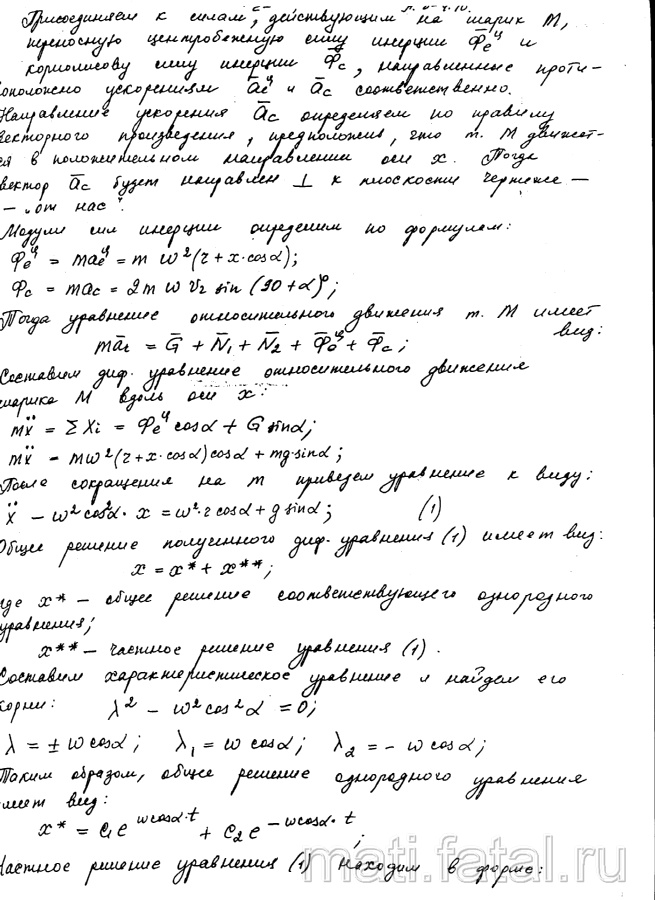 Присоединяем к силам, действующим на шарик М,
переносную центробежную силу инерции Ф̄eᶸ и
кориолисову силу инерции Ф̄c, направленные проти-
воположно ускорениям āeᶸ и āc соответственно.
Направление ускорения āc определяем по правилу
векторного произведения, предположив, что т. М движет-
ся в положительном направлении оси x. Тогда
вектор āc будет направлен ⊥ к плоскости чертежа —
— „от нас“.
Модули сил инерции определим по формулам:
Фeᶸ = maeᶸ = m ω²(r + x·cosα);
Фc = mac = 2m ω vr sin (90+α)°;
Тогда уравнение относительного движения т. М имеет
вид:
mār = Ḡ + N̄₁ + N̄₂ + Ф̄eᶸ + Ф̄c;
Составим диф. уравнение относительного движения
шарика М вдоль оси x:
mẍ = ΣXi = Фeᶸ cosα + G sinα;
mẍ = mω²(r + x·cosα)cosα + mg·sinα;
После сокращения на m приведем уравнение к виду:
ẍ − ω²cos²α·x = ω²·r cosα + g sinα; (1)
Общее решение полученного диф. уравнения (1) имеет вид:
x = x* + x**;
где x* – общее решение соответствующего однородного
уравнения;
x** – частное решение уравнения (1).
Составим характеристическое уравнение и найдем его
корни: λ² − ω²cos²α = 0;
λ = ± ω cosα; λ₁ = ω cosα; λ₂ = − ω cosα;
Таким образом, общее решение однородного уравнения
имеет вид:
x* = c₁e^(ωcosα·t) + c₂e^(−ωcosα·t);
Частное решение уравнения (1) находим в форме:
mati.fatal.ru